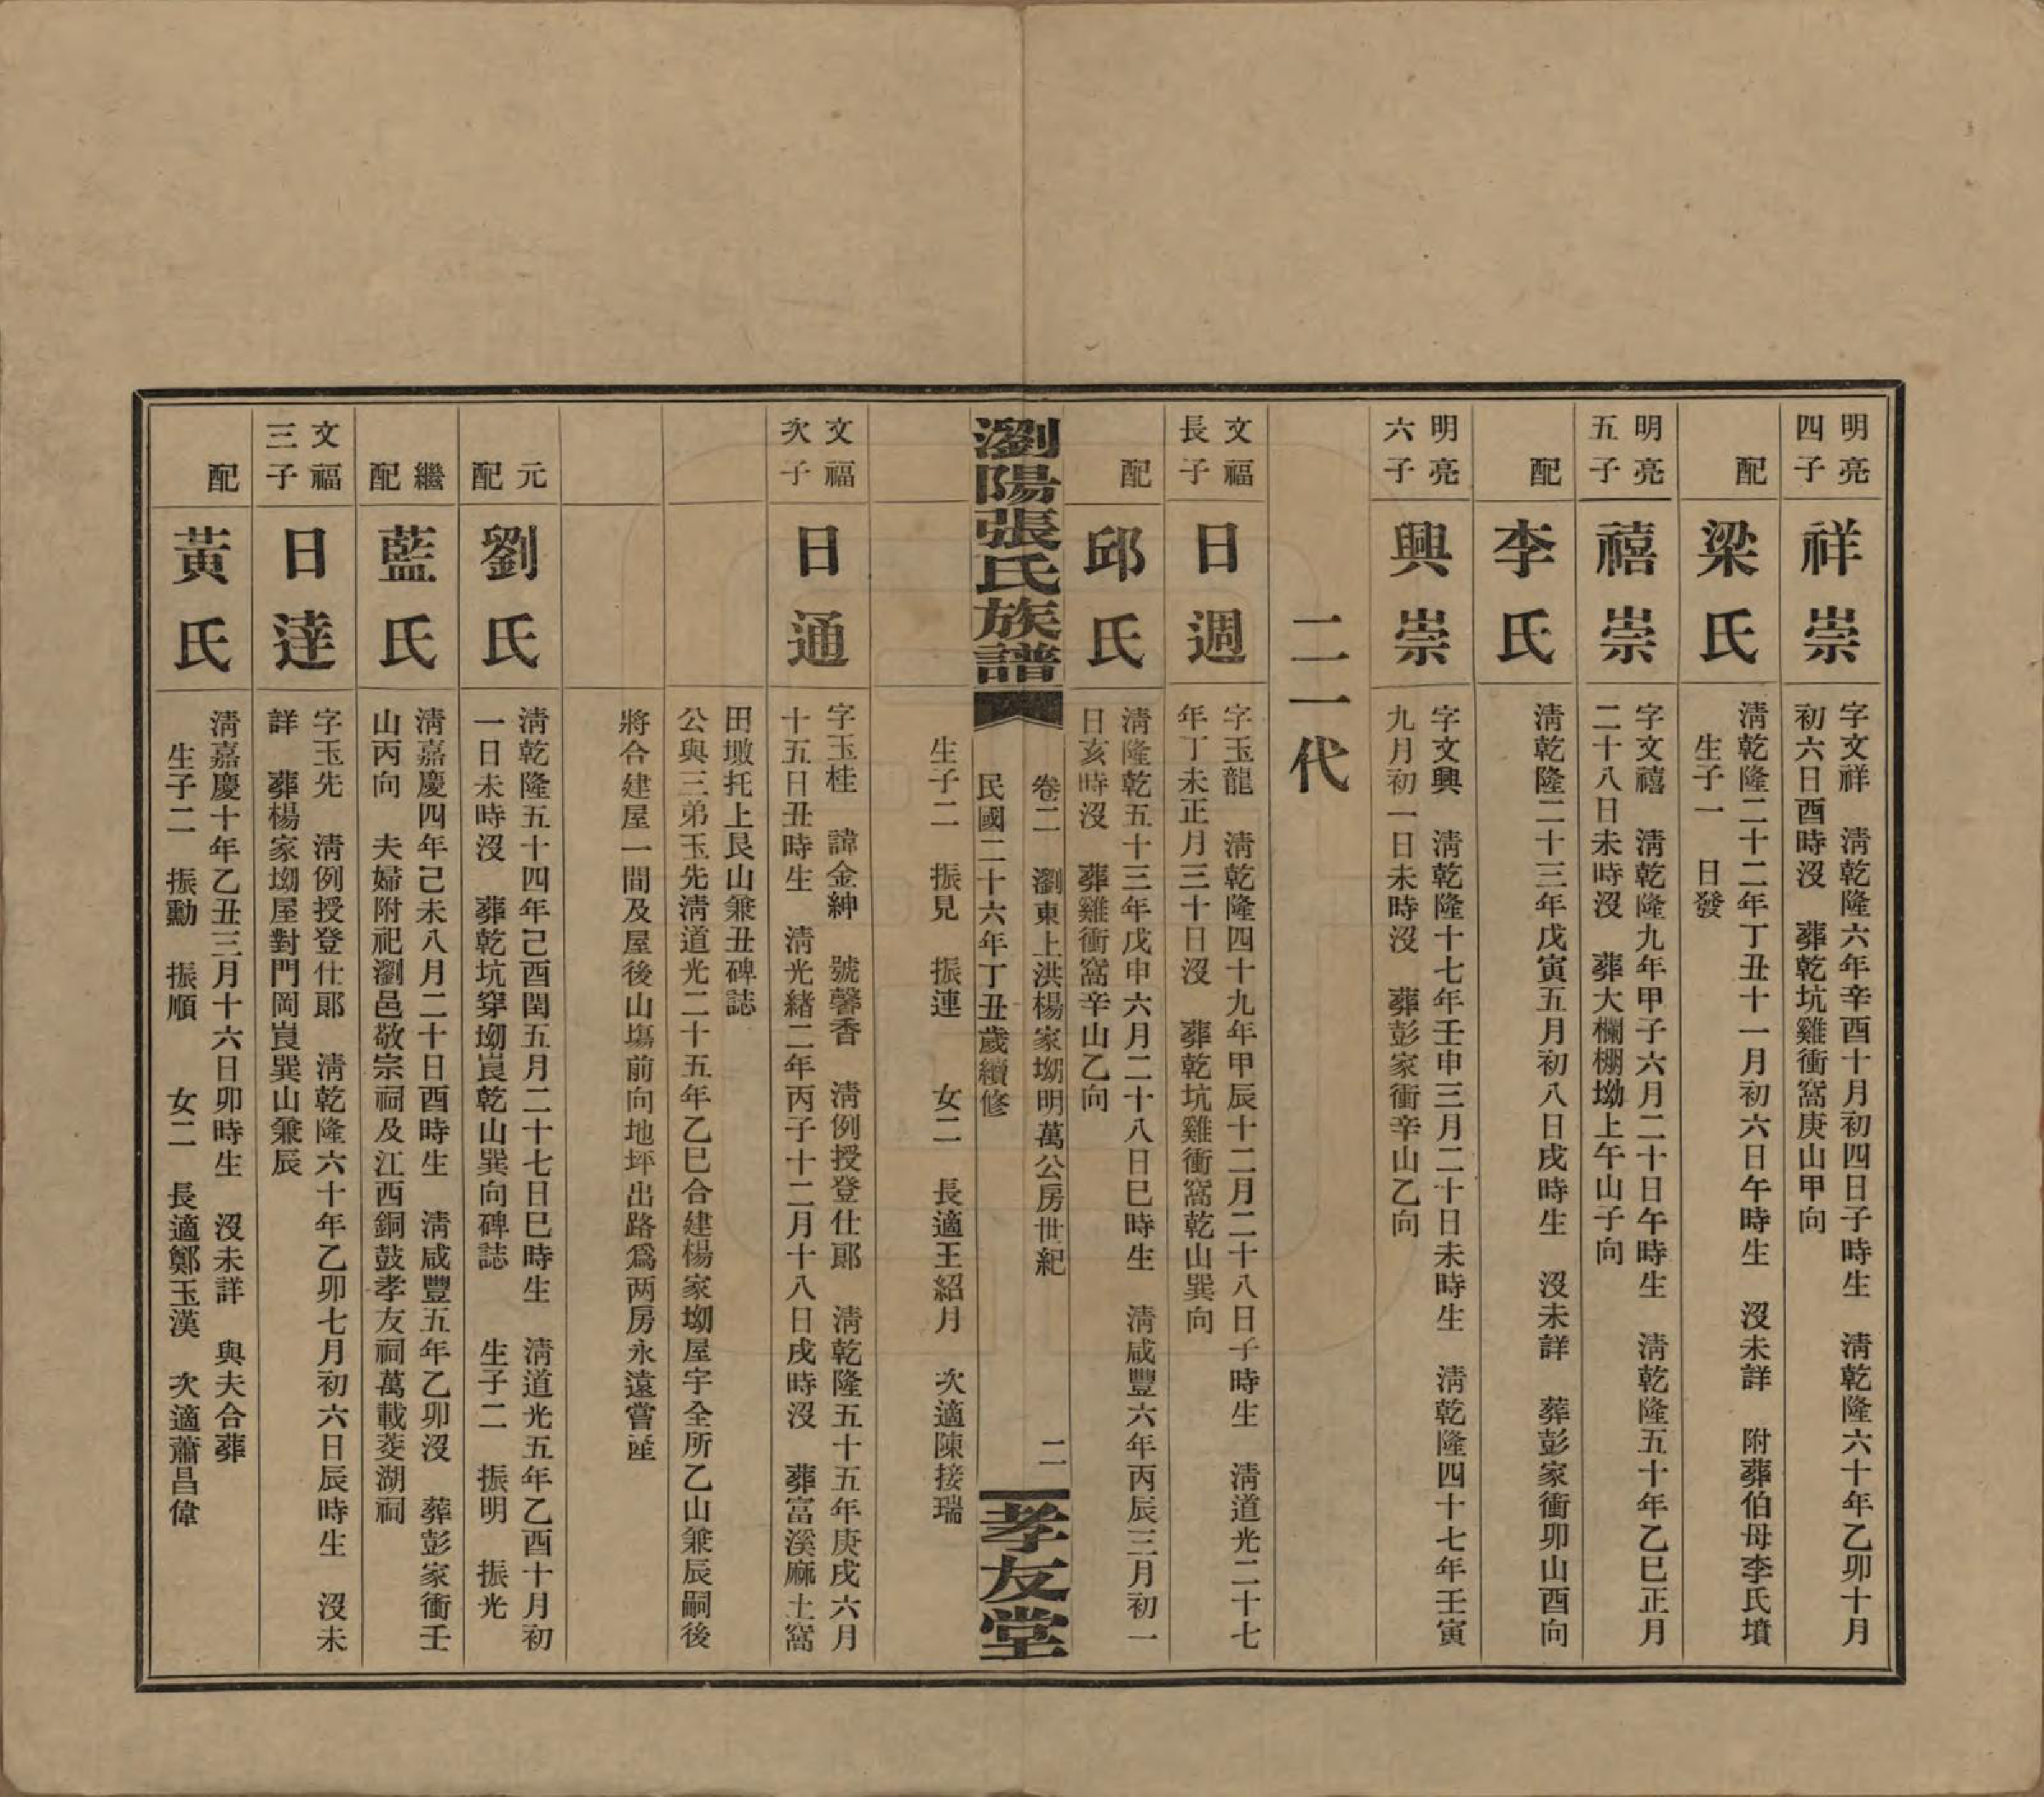 明亮
四子
祥崇
字文祥　清乾隆六年辛酉十月初四日子時生　清乾隆六十年乙卯十月
初六日酉時沒　葬乾坑雞衝窩庚山甲向
配
梁氏
清乾隆二十二年丁丑十一月初六日午時生　沒未詳　附葬伯母李氏墳
生子一　日發
明亮
五子
禧崇
字文禧　清乾隆九年甲子六月二十日午時生　清乾隆五十年乙巳正月
二十八日未時沒　葬大欄棚坳上午山子向
配
李氏
清乾隆二十三年戊寅五月初八日戌時生　沒未詳　葬彭家衝卯山酉向
明亮
六子
興崇
字文興　清乾隆十七年壬申三月二十日未時生　清乾隆四十七年壬寅
九月初一日未時沒　葬彭家衝辛山乙向
二一代
文福
長子
日週
字玉龍　清乾隆四十九年甲辰十二月二十八日子時生　清道光二十七
年丁未正月三十日沒　葬乾坑雞衝窩乾山巽向
配
邱氏
清隆乾五十三年戊申六月二十八日巳時生　清咸豐六年丙辰三月初一
日亥時沒　葬雞衝窩辛山乙向
瀏陽張氏族譜
卷二　瀏東上洪楊家坳明萬公房世紀　二
民國二十六年丁丑歲續修
孝友堂
生子二　振見　振連　女二　長適王紹月　次適陳接瑞
文福
次子
日通
字玉桂　諱金紳　號馨香　清例授登仕郎　清乾隆五十五年庚戌六月
十五日丑時生　清光緒二年丙子十二月十八日戌時沒　葬富溪麻土窩
田墩托上艮山兼丑碑誌
公與三弟玉先清道光二十五年乙巳合建楊家坳屋宇全所乙山兼辰嗣後
將合建屋一間及屋後山塲前向地坪出路爲两房永遠嘗產
元
配
劉氏
清乾隆五十四年己酉閏五月二十七日巳時生　清道光五年乙酉十月初
一日未時沒　葬乾坑穿坳崀乾山巽向碑誌　生子二　振明　振光
繼
配
藍氏
清嘉慶四年己未八月二十日酉時生　清咸豐五年乙卯沒　葬彭家衝壬
山丙向　夫婦附祀瀏邑敬宗祠及江西銅鼓孝友祠萬載菱湖祠
文福
三子
日逹
字玉先　清例授登仕郎　清乾隆六十年乙卯七月初六日辰時生　沒未
詳　葬楊家坳屋對門岡崀巽山兼辰
配
黃氏
清嘉慶十年乙丑三月十六日卯時生　沒未詳　與夫合葬
生子二　振勳　振順　女二　長適鄭玉漢　次適蕭昌偉